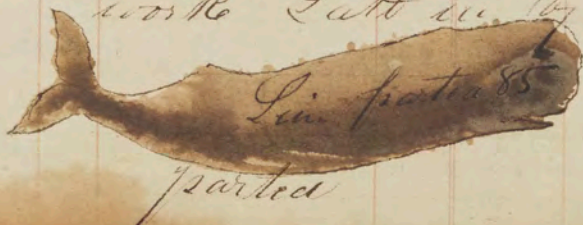 work Latt in by
Line parted 85
parted